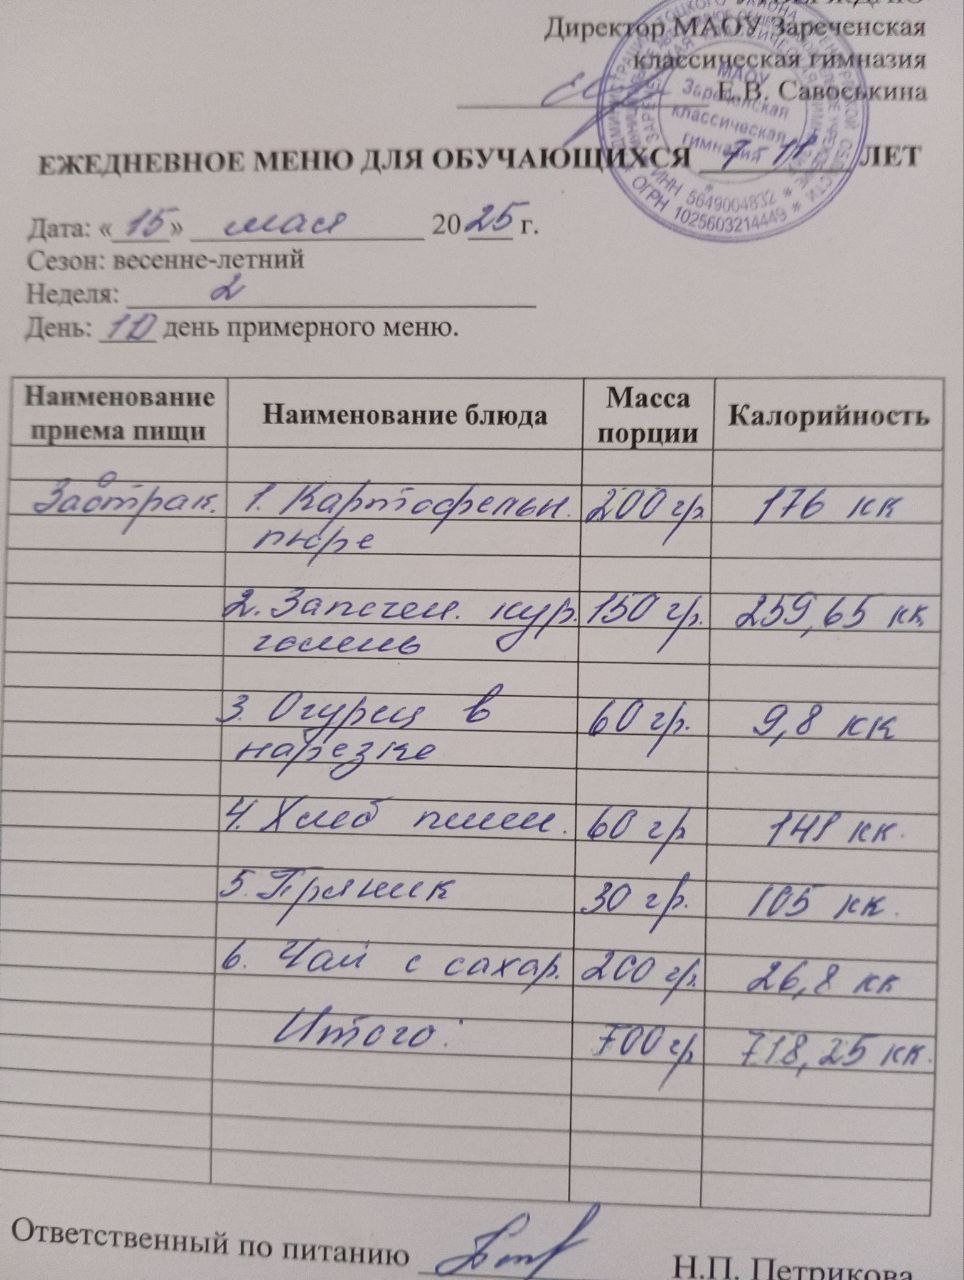 Директор МАОУ Зареченская
классическая гимназия
Е.В. Савоськина
МАОУ
Зареченская
классическая
гимназия
* ИНН 5649004832 *
* ОГРН 1025603214449 *
ЕЖЕДНЕВНОЕ МЕНЮ ДЛЯ ОБУЧАЮЩИХСЯ 7-11 ЛЕТ
Дата: «15» мая 2025 г.
Сезон: весенне-летний
Неделя: 2
День: 10 день примерного меню.
Наименование приема пищи Наименование блюда Масса порции Калорийность
Завтрак. 1. Картофельн. 200 гр 176 кк
пюре
2. Запечен. кур. 150 гр. 259,65 кк
голень
3. Огурец в 60 гр. 9,8 кк
нарезке
4. Хлеб пшен. 60 гр 141 кк.
5. Пряник 30 гр. 105 кк.
6. Чай с сахар. 200 гр. 26,8 кк
Итого: 700 гр 718,25 кк.
Ответственный по питанию Н.П. Петрикова